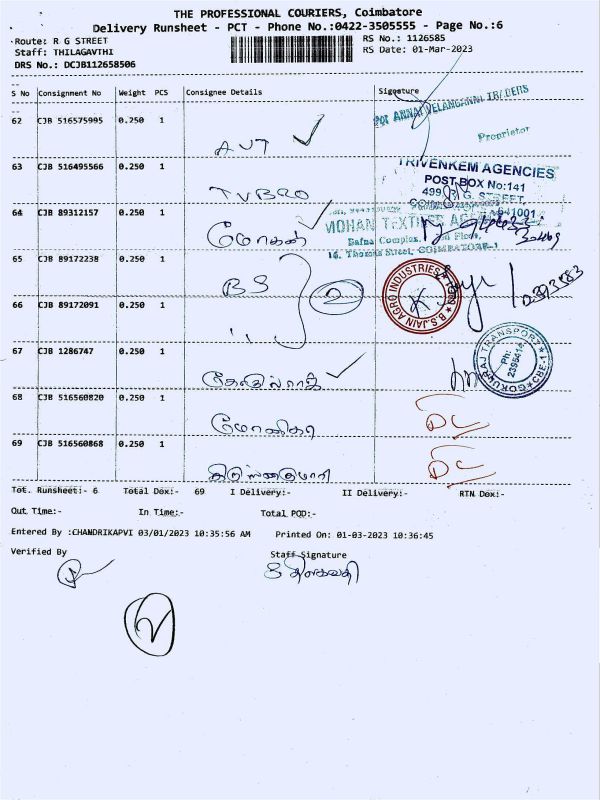 THE PROFESSIONAL COURIERS, Coimbatore
Delivery Runsheet - PCT - Phone No.:0422-3505555 - Page No.:6
Route: R G STREET
RS No.: 1126585
Staff: THILAGAVTHI
RS Date: 01-Mar-2023
DRS No.: DCJB112658506
S No Consignment No Weight PCS Consignee Details Signature
62 CJB 516575995 0.250 1
AVT
ANNAI VELANGANNI TRADERS
Proprietor
63 CJB 516495566 0.250 1
TVBRO
TRIVENKEM AGENCIES
POST BOX No:141
499, R. G. STREET,
64 CJB 89312157 0.250 1
மோகன்
MOHAN TEXTILES
Bafna Complex,
16, Thomas Street, COIMBATORE-1
65 CJB 89172238 0.250 1
BS
2
B.S.JAIN AGRO INDUSTRIES
66 CJB 89172091 0.250 1
"
67 CJB 1286747 0.250 1
GOKULRAJ TRANSPORT
CBE-1
Ph:
2395414
68 CJB 516560820 0.250 1
மோனிகா
DC
69 CJB 516560868 0.250 1
DC
Tot. Runsheet:- 6 Total Dox:- 69 I Delivery:- II Delivery:- RTN Dox:-
Out Time:- In Time:- Total POD:-
Entered By :CHANDRIKAPVI 03/01/2023 10:35:56 AM Printed On: 01-03-2023 10:36:45
Verified By Staff Signature
S திலகவதி